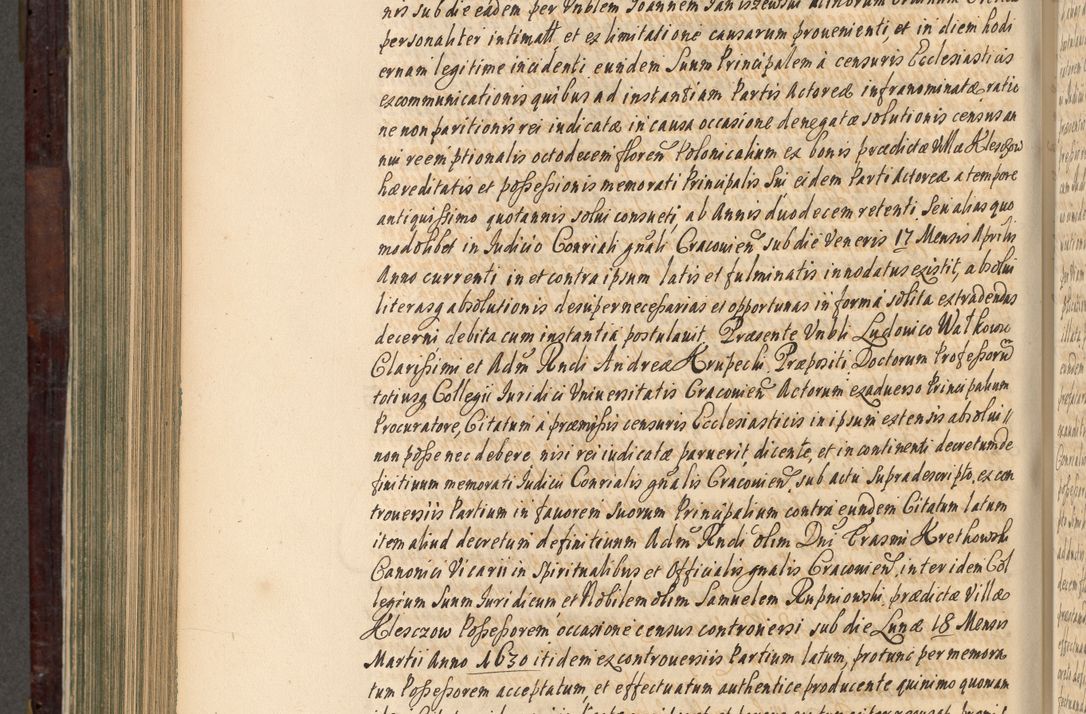 nis sub die eadem per Vnblem Joannem Janiszewski
personaliter intimatt et ex limitatione causarum provenienti, et in diem hodi
ernam legitime incidenti eundem Suum Principalem à censuris Ecclesiasticis
excommunicationis quibus ad instantiam Partis Actoreæ infranominatæ ratio
ne non paritionis rei iudicatæ in causa occasione denegatæ solutionis census an
nui reemptionalis octodecem floren Polonicalium ex bonis prædictæ Villæ Klesczow
hæreditatis et possessionis memorati Principalis Sui eidem Parti Actoreæ a tempore
antiquissimo quotannis solui consueti, ab Annis duodecem retenti. Seu alias quo
modolibet in Judicio Consriali gnali Cracouien sub die Veneris 17 Mensis Aprilis
Anno currenti in et contra ipsum latis et fulminatis innodatus existit, absolui
literasq absolutionis desuper necessarias et opportunas in forma solita extradendas
decerni debita cum instantia postulauit. Præsente Vnbli Ludouico Wałkowic
Clarissimi et Adm Rndi Andreæ Krupecki Præpositi Doctorum Professorum
totiusq Collegii Juridici Vniuersitatis Cracouien Actorum exaduerso Principalium
Procuratore, Citatum à præmissis censuris Ecclesiasticis in ipsum extensis absolui //
non posse nec debere nisi rei iudicatæ paruerit dicente, et in continenti decretum de
finitiuum memorati Judicii Consrialis gnalis Cracouien, sub actu supradescripto, ex con
trouersiis Partium in fauorem suorum Principalium contra eundem Citatum latum
item aliud decretum definitiuum Adm Rndi olim Dni Erasmi Krethowski
Canonici Vicarii in Spiritualibus et Officialis gnalis Cracouien, inter idem Col
legium Suum Juridicum et Nobilem olim Samuelem Rupniowski prædictæ Villæ
Klesczow Possessorem occasione census controuersi sub die Lunæ 18 Mensis
Martii Anno 1630 itidem ex controuersiis Partium latum, protunc per memora
tum Possessorem acceptatum, et effectuatum authentice producente quinimo quoniam